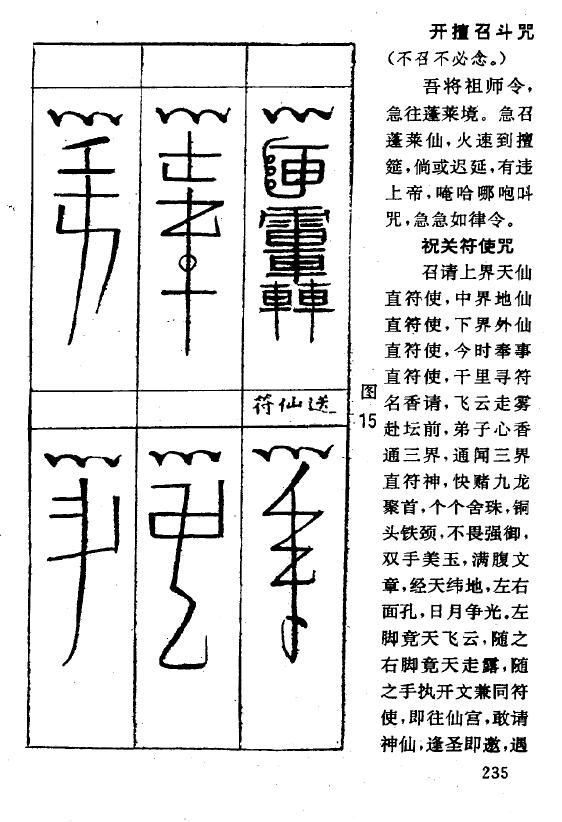 开擅召斗咒
（不召不必念。）
吾将祖师令，
急往蓬莱境。急召
蓬莱仙，火速到擅
筵，倘或迟延，有违
上帝，唵哈哪咆叫
咒，急急如律令。
祝关符使咒
召请上界天仙
直符使，中界地仙
直符使，下界外仙
直符使，今时奉事
直符使，千里寻符
名香请，飞云走雾
赴坛前，弟子心香
通三界，通闻三界
直符神，快赌九龙
聚首，个个舍珠，铜
头铁颈，不畏强御，
双手美玉，满腹文
章，经天纬地，左右
面孔，日月争光。左
脚竟天飞云，随之
右脚竟天走露，随
之手执开文兼同符
使，即往仙宫，敢请
神仙，逢圣即邀，遇
符仙送
图
15
235